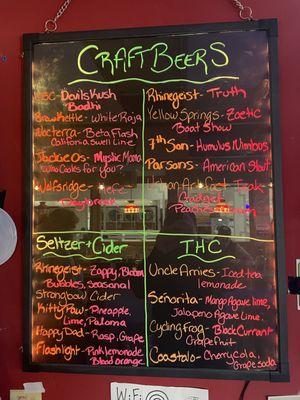 CRAFT BEERS
BBC-Devils Kush
Bodhi
Brewkettle-White Raja
Nocterra-Beta Flash
California Swell Line
Jackie Os-Mystic Mama
Who Cooks for you?
Wolfsridge-
Daybreak
Rhinegeist-Truth
Yellow Springs-Zoetic
Boat Show
7th Son-Humulus Nimbus
Parsons-American Stout
Urban Artifact-Teak
Gadget
Peaches
Seltzer+Cider
Rhinegeist-Zappy, Bloom
Bubbles, Seasonal
Strongbow Cider
Kitty Paw-Pineapple,
Lime, Paloma
Happy Dad-Rasp, Grape
Flashlight-Pink lemonade
Blood orange
THC
Uncle Arnies-Iced tea
lemonade
Señorita-Mango Agave lime,
Jalapeno Agave lime
Cycling frog-Black Currant
Grapefruit
Coastalo-Cherry Cola,
Grape soda
WiFi